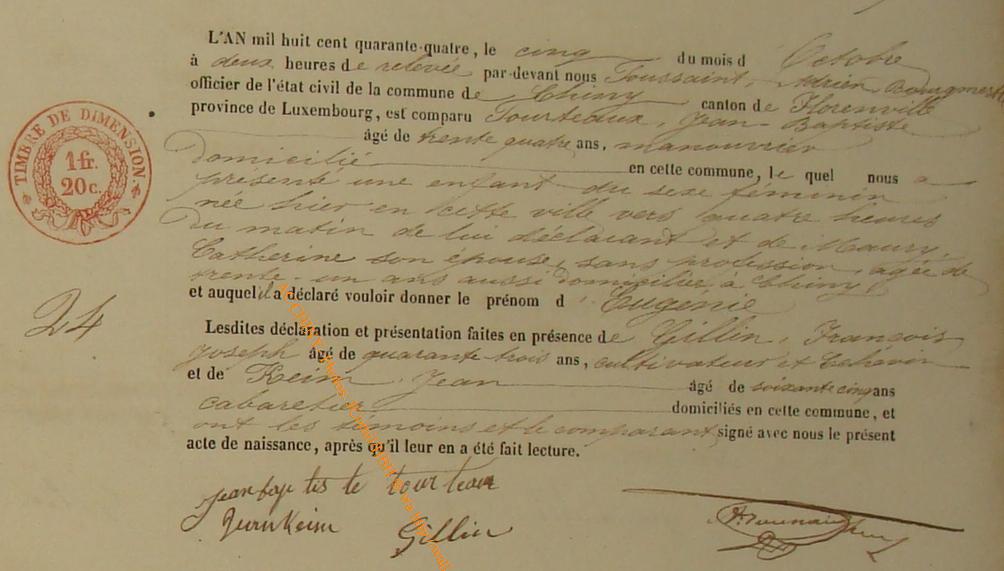 L'AN mil huit cent quarante-quatre, le cinq du mois d Octobre
à deux heures de relevée par-devant nous Toussaint, Adrien
officier de l'état civil de la commune de Chiny canton de Florenville
province de Luxembourg, est comparu Tourteaux, Jean-Baptiste
âgé de trente quatre ans, manouvrier
domicilié en cette commune, le quel nous a
présenté une enfant du sexe féminin
née hier en cette ville vers quatre heures
du matin de lui déclarant et de Maury,
Catherine son épouse, sans profession, agée de
trente-un ans aussi domiciliée à Chiny
et auquel il a déclaré vouloir donner le prénom d'Eugenie
Lesdites déclaration et présentation faites en présence de Gillin, François
Joseph âgé de quarante-trois ans, cultivateur et Echevin
et de Keim, Jean âgé de soixante cinq ans
cabaretier domiciliés en cette commune, et
ont les témoins et le comparant signé avec nous le présent
acte de naissance, après qu'il leur en a été fait lecture.
jean bap tis te tourteau
Jean Keim Gillin
TIMBRE DE DIMENSION
1 fr.
20 c.
24